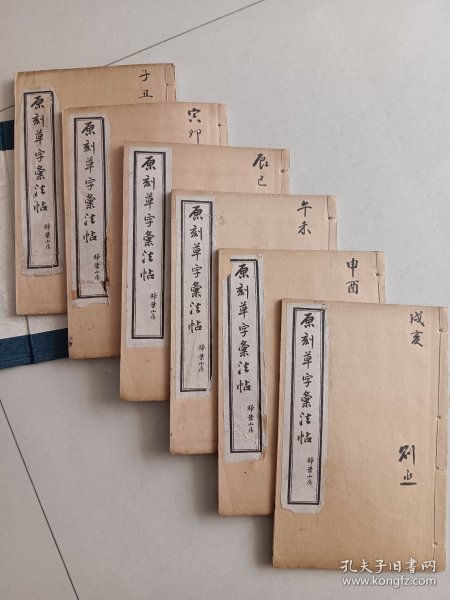 子丑
原刻草字彙法帖
掃葉山房
寅卯
原刻草字彙法帖
掃葉山房
辰巳
原刻草字彙法帖
掃葉山房
午未
原刻草字彙法帖
掃葉山房
申酉
原刻草字彙法帖
掃葉山房
戌亥
原刻草字彙法帖
掃葉山房
孔夫子旧书网
www.kongfz.com